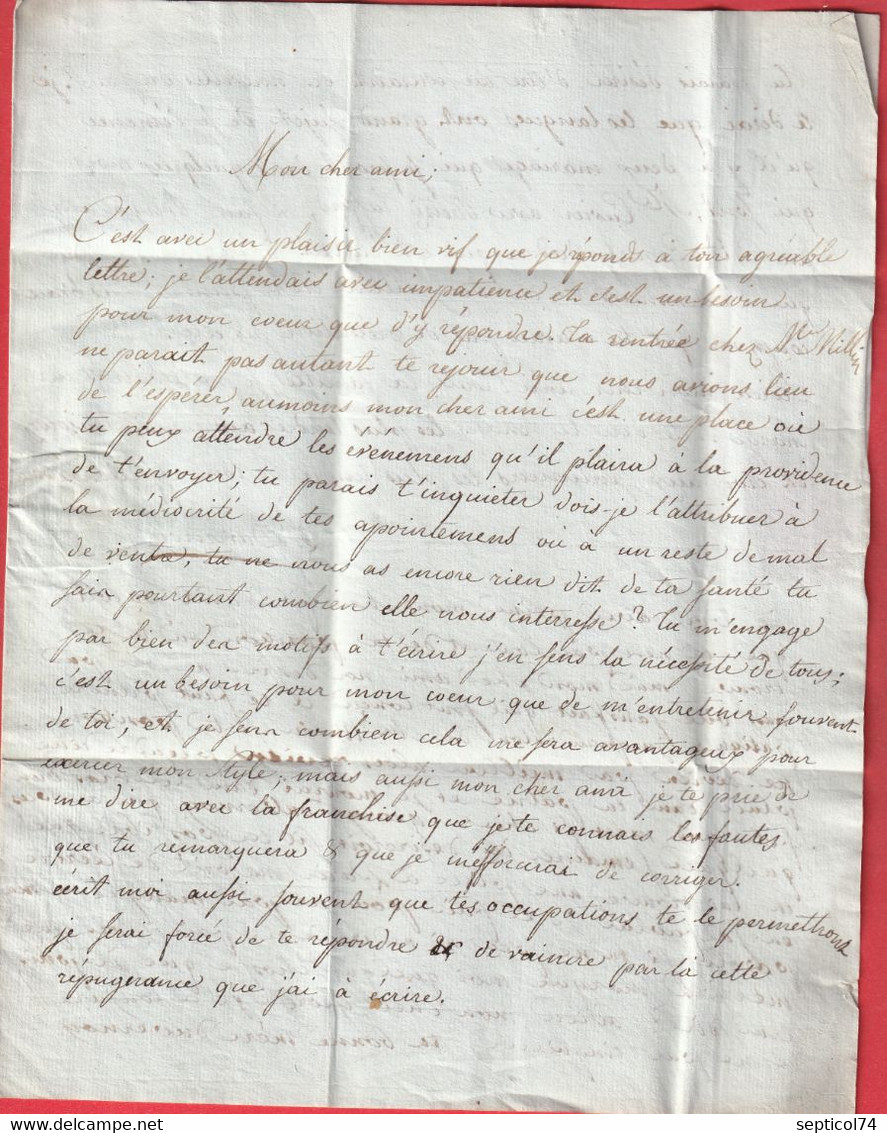 Mon cher ami,
C'est avec un plaisir bien vif que je réponds à ton agréable
lettre; je l'attendais avec impatience et c'est un besoin
pour mon coeur que d'y répondre. Ta rentrée chez Mr Millin
ne parait pas autant te rejouir que nous avions lieu
de l'espérer, aumoins mon cher ami c'est une place où
tu peux attendre les evènemens qu'il plaira à la providence
de t'envoyer; tu parais t'inquiéter dois-je l'attribuer à
la médiocrité de tes apointemens où à un reste de mal
de ventre, tu ne nous as encore rien dit de ta santé tu
sais pourtant combien elle nous interresse? Tu m'engage
par bien des motifs à t'écrire j'en sens la nécessité de tous;
c'est un besoin pour mon coeur que de m'entretenir souvent
de toi, et je sens combien cela me sera avantageux pour
mon style; mais aussi mon cher ami je te prie de
me dire avec la franchise que je te connais les fautes
que tu remarquera & que je m'efforcerai de corriger.
écrit moi aussi souvent que tes occupations te le permettront
je serai forcé de te répondre & de vaincre par là cette
répugerance que j'ai à écrire.
septicol74